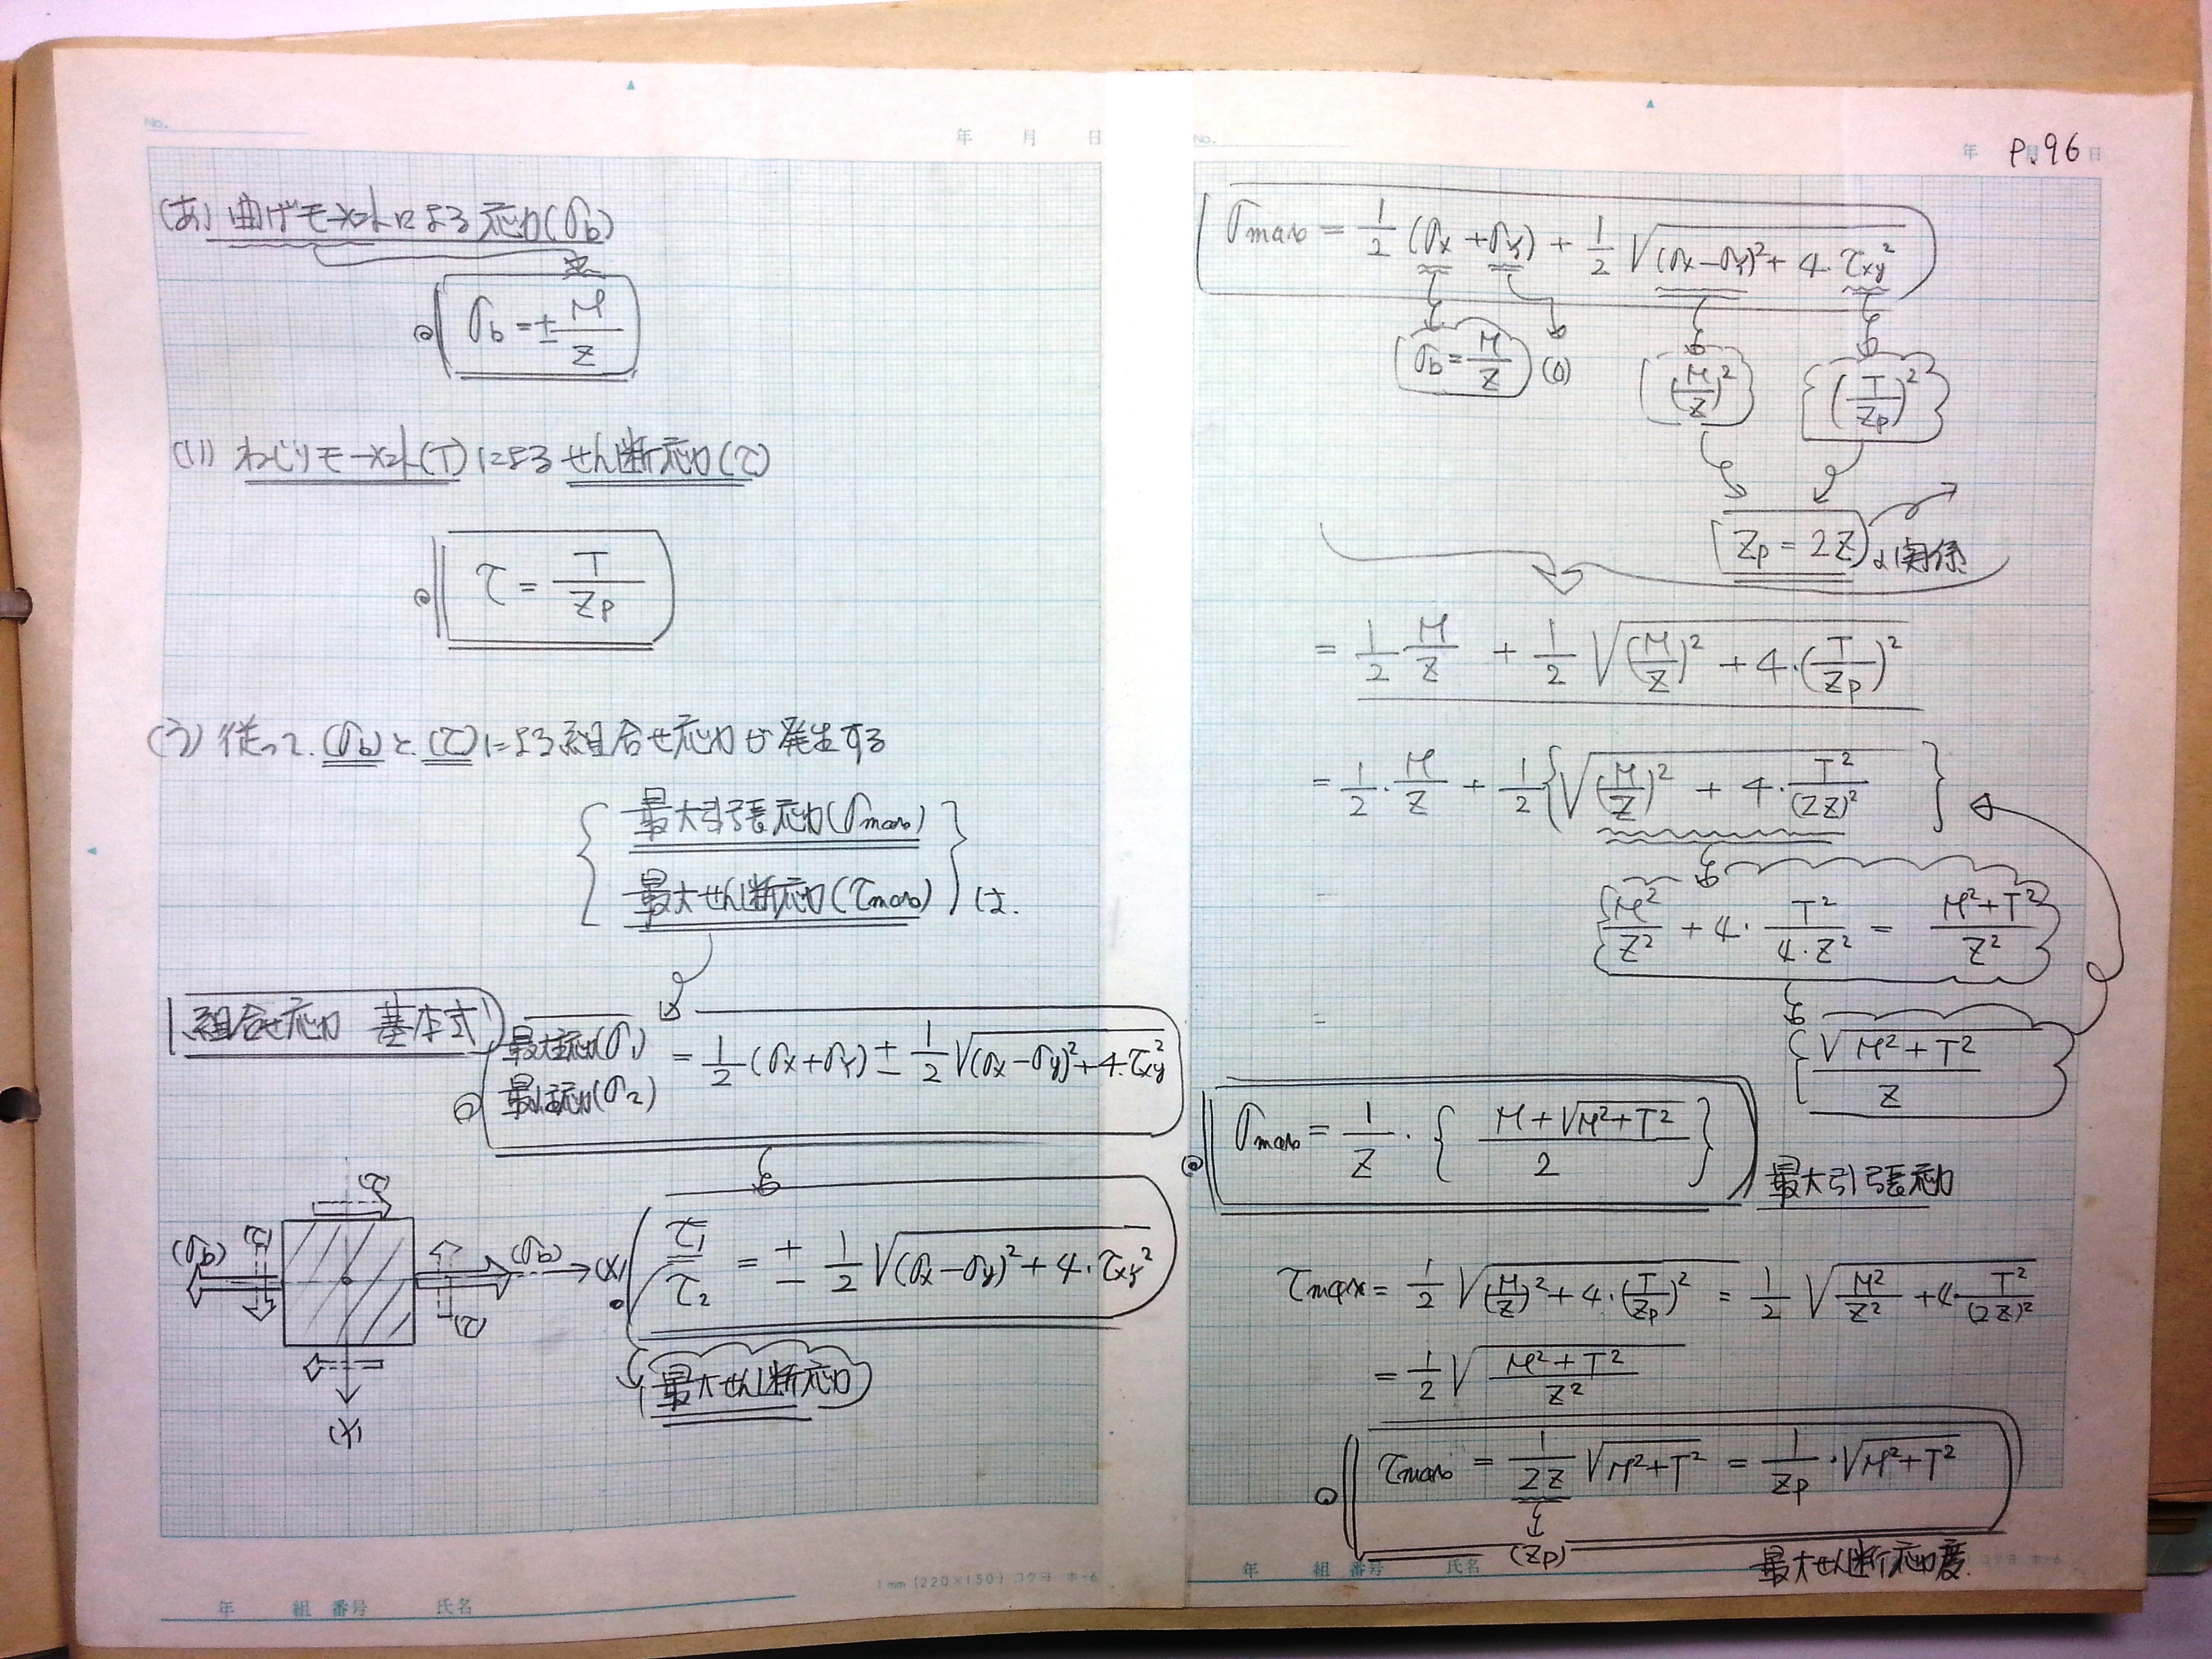 No.
年 月 日
(あ) 曲げモーメントによる応力(σb)
σb = ± M/Z
(い) ねじりモーメント(T)によるせん断応力(τ)
τ = T/Zp
(う) 従って、(σb)と(τ)による組合せ応力が発生する
最大引張応力(σmax)
最大せん断応力(τmax) は、
組合せ応力 基本式
最大主応力(σ1)
最小主応力(σ2) = 1/2 (σx+σy) ± 1/2 √((σx−σy)²+4·τxy²)
τ1
τ2 = ± 1/2 √((σx−σy)²+4·τxy²)
最大せん断応力
(τ)
(σb) (τ) (σb) (X)
(τ)
(Y)
1mm (220×150) コクヨ ホ-6
年 組 番号 氏名
No.
年 月 日
P.96
σmax = 1/2 (σx+σy) + 1/2 √((σx−σy)²+4·τxy²)
σb = M/Z (0) (M/Z)² (T/Zp)²
Zp = 2Z の関係
= 1/2 M/Z + 1/2 √((M/Z)² + 4·(T/Zp)²)
= 1/2 · M/Z + 1/2 {√((M/Z)² + 4·T²/(2Z)²)}
M²/Z² + 4· T²/4·Z² = M²+T²/Z²
√(M²+T²)/Z
σmax = 1/Z · { M+√(M²+T²) / 2 }
最大引張応力
τmax = 1/2 √((M/Z)²+4·(T/Zp)²) = 1/2 √(M²/Z² +4·T²/(2Z)²)
= 1/2 √(M²+T²/Z²)
τmax = 1/2Z √(M²+T²) = 1/Zp · √(M²+T²)
(Zp)
最大せん断応力度
年 組 番号 氏名